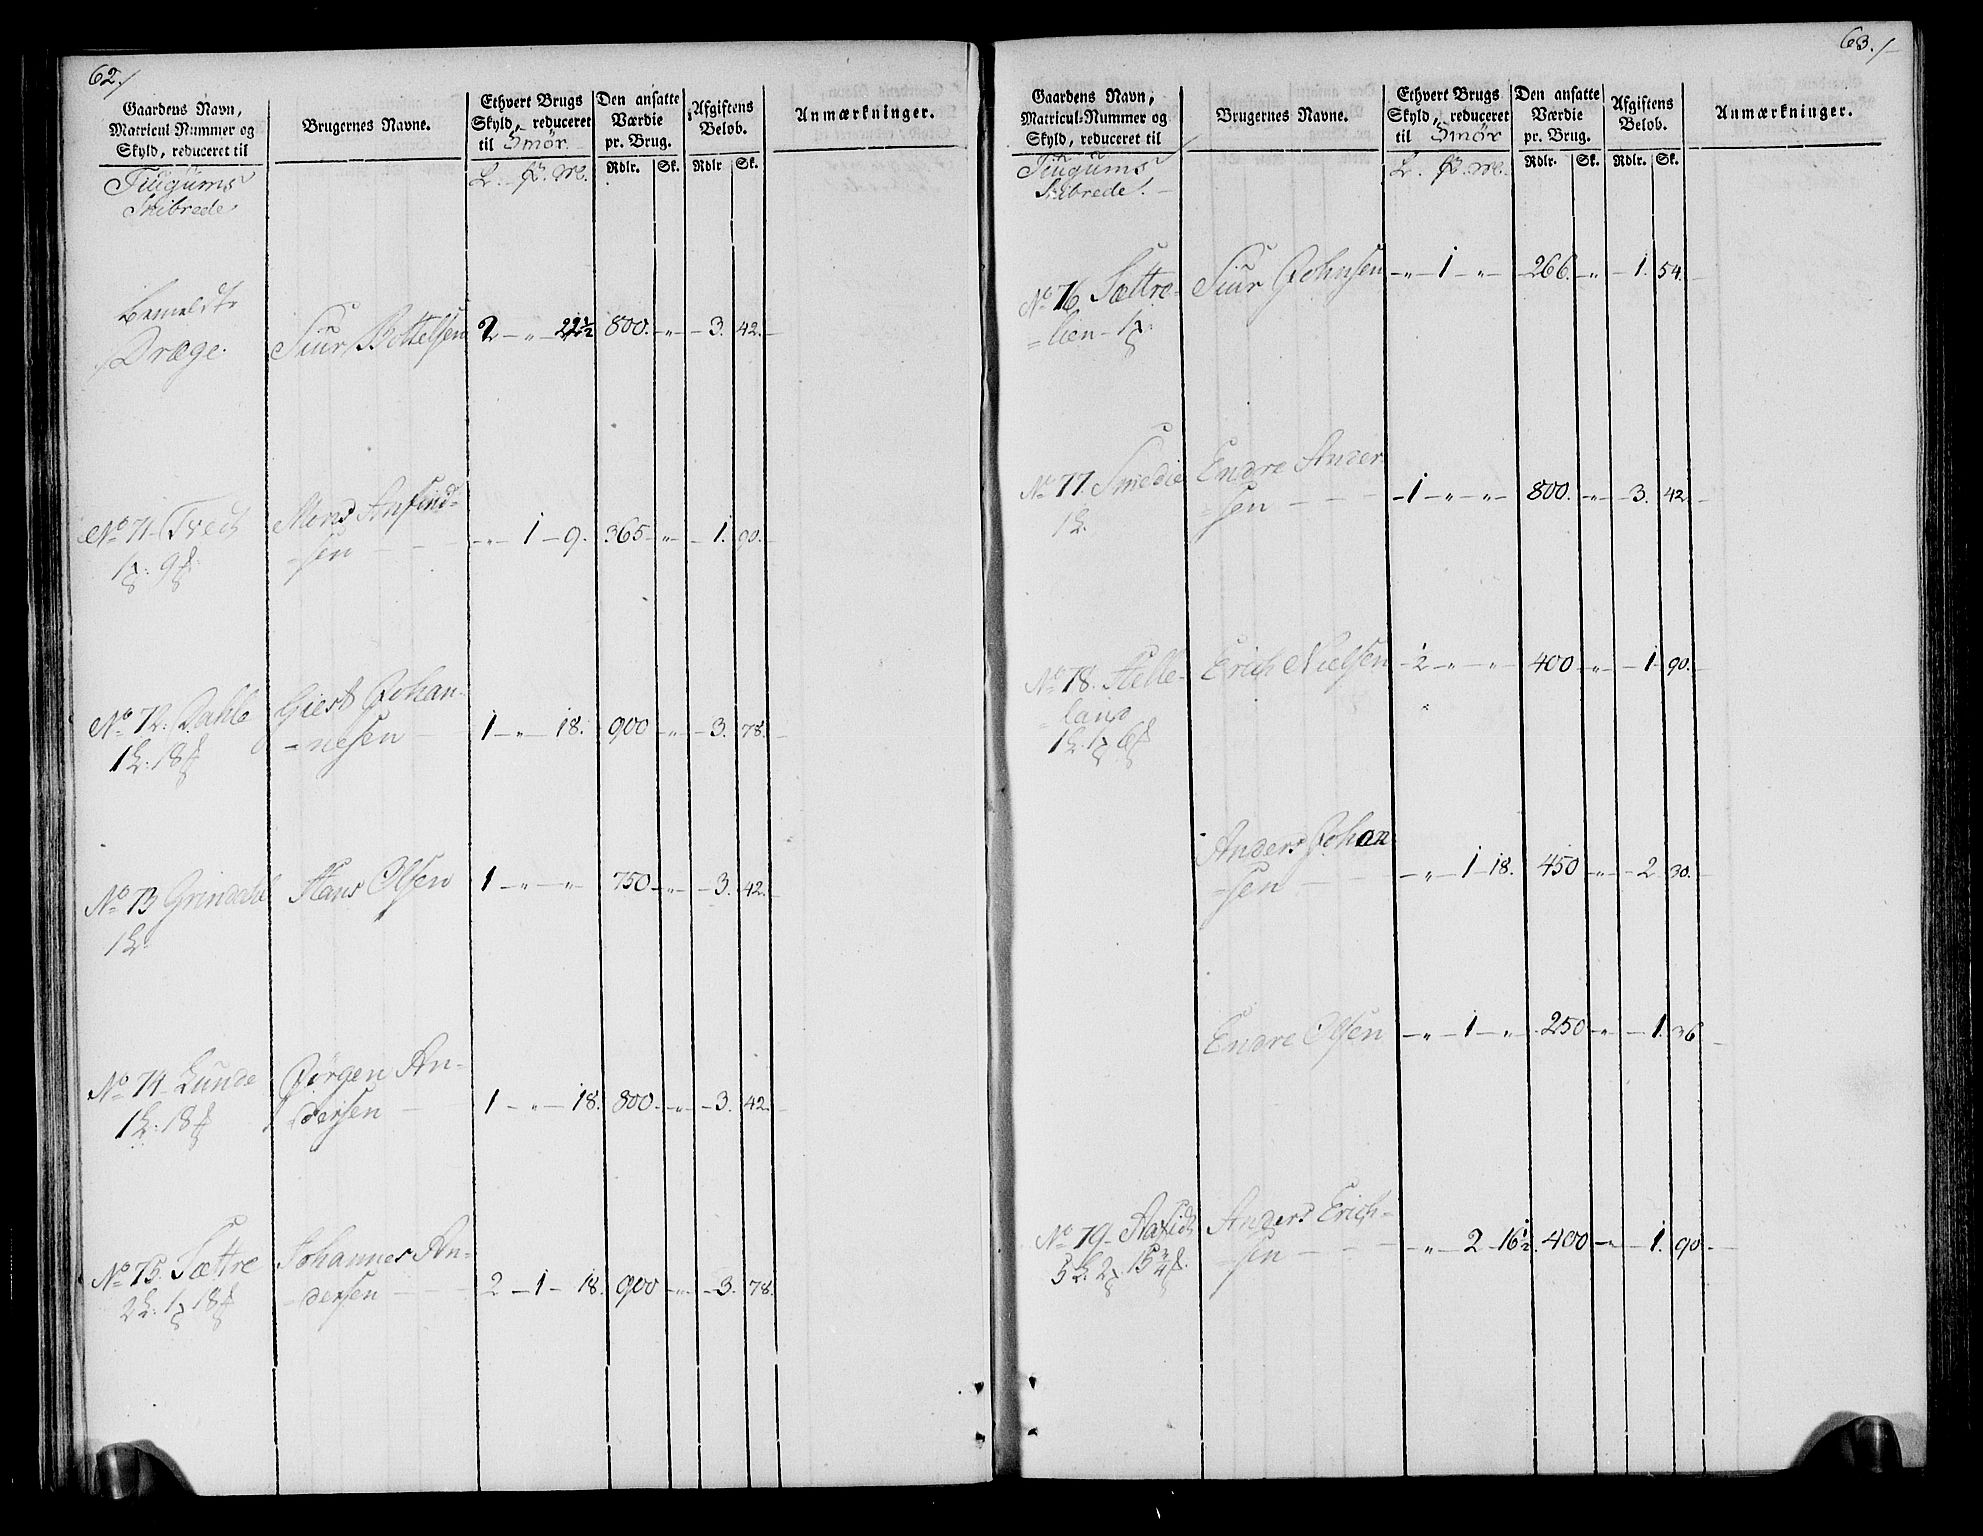 62./
Gaardens Navn,
Matricul-Nummer og
Skyld, reduceret til
Brugernes Navne.
Ethvert Brugs
Skyld, reduceret
til Smør.
Den ansatte
Værdie
pr. Brug.
Afgiftens
Beløb.
Anmærkninger.
Rdlr. Sk. Rdlr Sk.
Tiugums
Skibrede
bemeldte
Dræge. Siur Bottelsen 2 - " - 22½ 800. - " - 3. 42. -
No 71 Tved Mons Anfind=
=sen - " - 1 - 9. 365 - " - 1. 90. -
No 72. Dahle Giest Johan=
=nesen 1 - " - 18. 900 - " - 3. 78. -
No 73 Grindahl Hans Olsen 1 - " - " 750 - " - 3. 42. -
No 74 Lunde Jørgen An=
=dersen 1 - " - 18. 800 - " - 3. 42. -
No 75. Sættre Johannes An=
=dersen 2 - 1 - 18. 900 - " - 3. 78. -
63./
Gaardens Navn,
Matricul-Nummer og
Skyld, reduceret til
Brugernes Navne.
Ethvert Brugs
Skyld, reduceret
til Smør
Den ansatte
Værdie
pr. Brug.
Afgiftens
Beløb.
Anmærkninger.
Rdlr. Sk. Rdlr. Sk.
Tiugums
Skibrede.
No 76 Sættre= Siur Johnsen - " - 1 - " - 266. - " - 1. 54. -
=lien
No 77. Smedie Endre Ander
=sen - 1 - " - " - 800. - " - 3. 42 -
No 78. Helle= Erich Nielsen - ½ - " - " 400 - " - 1 90. -
=land
Anders Johan
=sen - " - 1 18. 450 - " - 2 30. -
Endre Olsen - " - 1 - " - 250 - " - 1. 36 -
No 79 Anders Erich=
=sen - " - 2 - 16½ 400 - " - 1. 90. -